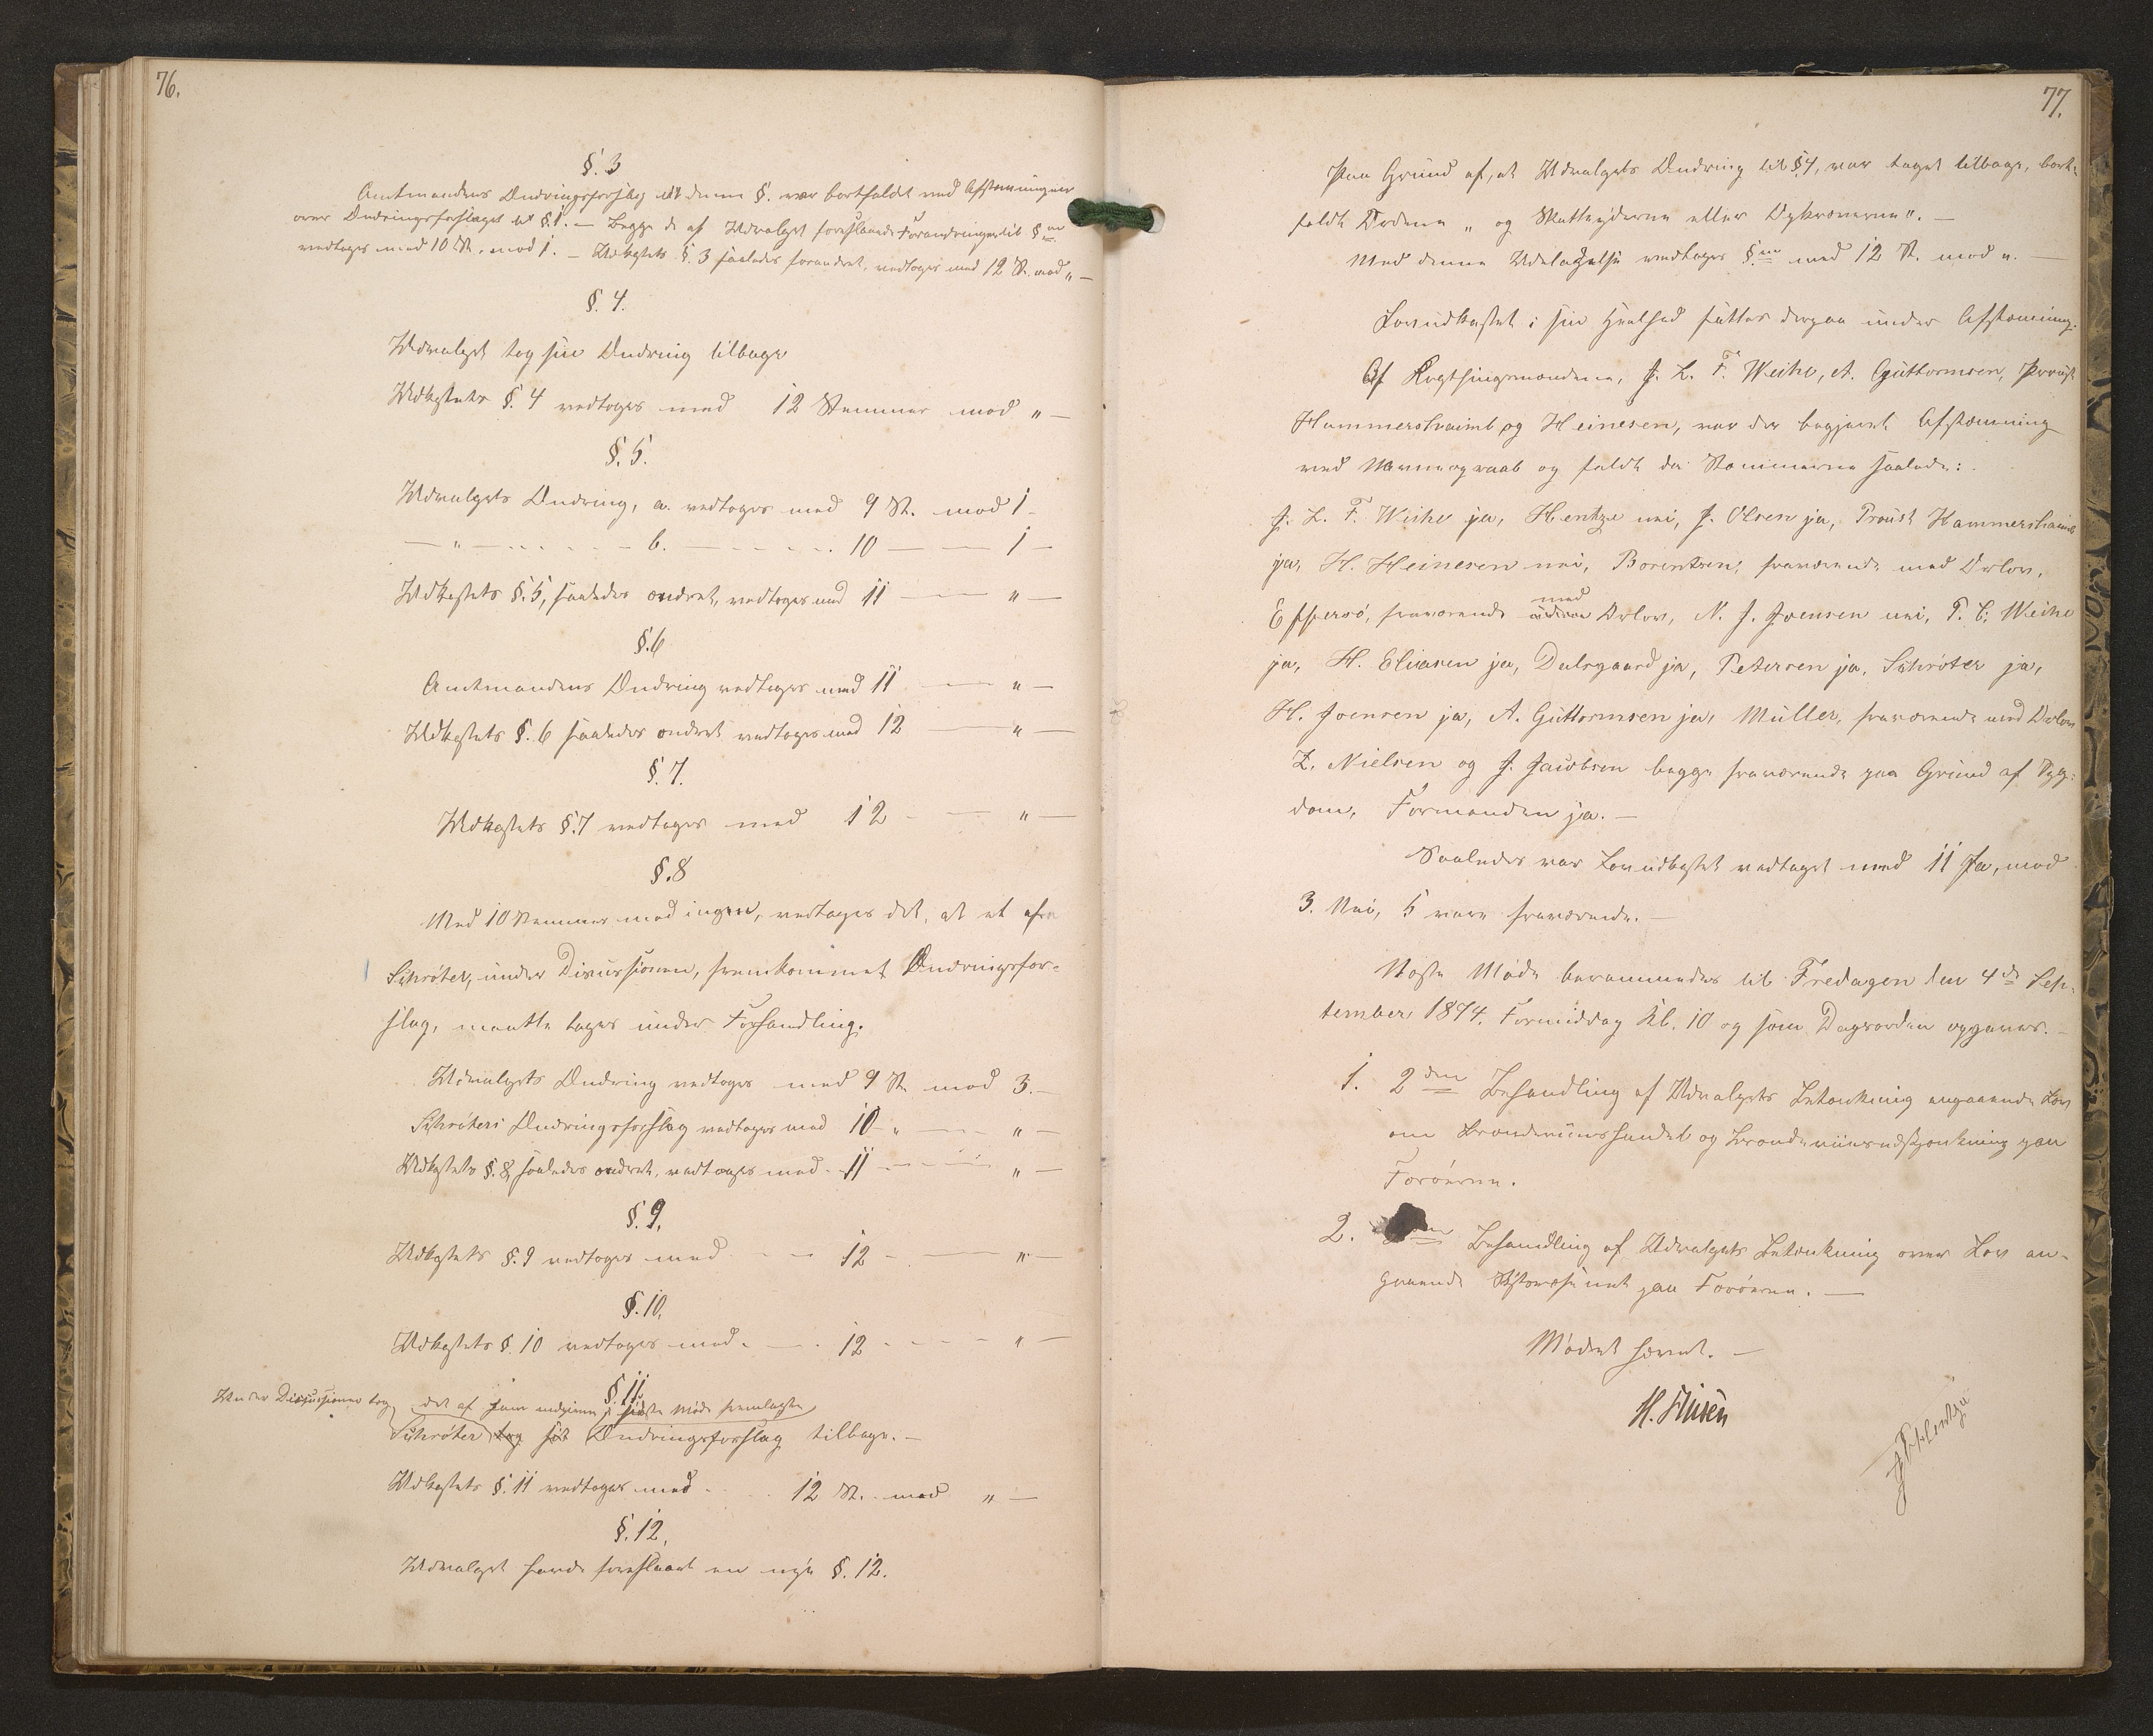 76.
§. 3
Amtmandens Ændringsforslag til denne §. var bortfaldet ved Afstemningen
over Ændringsforslaget til §. 1. — Begge de af Udvalget foreslaaede Forandringer til §en
vedtoges med 10 St. mod 1. — Udkastets §. 3 saaledes forandret, vedtoges med 12 St. mod „ —
§. 4.
Udvalget tog sin Ændring tilbage
Udkastets §. 4 vedtoges med 12 Stemmer mod „ —
§. 5.
Udvalgets Ændring, a. vedtoges med 9 St. mod 1 -
— „ — - - - - - b. — - - - - 10 — — 1 —
Udkastets §. 5, saaledes ændret, vedtoges med 11 — — „ —
§. 6
Amtmandens Ændring vedtoges med 11 — „ —
Udkastets §. 6 saaledes ændret vedtoges med 12 — „ —
§. 7.
Udkastets §. 7 vedtoges med 12 - — „ —
§. 8
Med 10 Stemmer mod ingen, vedtoges det, at et af
Schrøter, under Discussionen, fremkommet Ændringsfor-
slag, maatte tages under Forhandling.
Udvalgets Ændring vedtoges med 9 St. mod 3. —
Schrøters Ændringsforslag vedtoges med 10 „ — „ —
Udkastets §. 8, saaledes ændret, vedtoges med - 11 — - — „ —
§. 9.
Udkastets §. 9 vedtoges med - - - 12 - — „ —
§. 10.
Udkastets §. 10 vedtoges med - — - 12 - - - - „ —
§. 11.
Under Discussionen tog det af ham indgivne i sidste Møde fremlagte
Schrøter tog sit Ændringsforslag tilbage. —
Udkastets §. 11 vedtoges med - - 12 St. mod „ —
§. 12.
Udvalget havde foreslaaet en ny §. 12.
77.
Paa Grund af, at Udvalgets Ændring til §. 4, var taget tilbage, bort-
faldt Ordene „ og Skatteyderne eller Opkræverne". —
Med denne Udeladelse vedtoges §en med 12 St. mod „. —
Lovudkastet i sin Heelhed sattes derpaa under Afstemning.
Af Lagthingsmændene, J. L. F. Weihe, A. Guttormsen, Provst
Hammershaimb og Heinesen, var der begjært Afstemning
ved Navneopraab og faldt da Stemmerne saaledes:
J. L. F. Weihe ja, Hentze nei, J. Olsen ja, Provst Hammershaimb
ja, H. Heinesen nei, Berentsen, fraværende med Orlov,
Effersø, fraværende uden med Orlov, N. J. Joensen nei, T. C. Weihe
ja, H. Eliasen ja, Dalsgaard ja, Petersen ja, Schrøter ja,
H. Joensen ja, A. Guttormsen ja, Müller, fraværende med Orlov
Z. Nielsen og J. Jacobsen begge fraværende paa Grund af Syg-
dom, Formanden ja. —
Saaledes var Lovudkastet vedtaget med 11 Ja, mod
3. Nei, 5 vare fraværende. —
Næste Møde berammedes til Fredagen den 4de Sep-
tember 1874. Formiddag Kl. 10 og som Dagsorden opgaves. —
1. 2den Behandling af Udvalgets Betænkning angaaende Lov
om Brændeviinshandel og Brændeviinsudskjænkning paa
Færøerne.
2. Behandling af Udvalgets Betænkning over Lov an-
gaaende paa Færøerne. —
Mødet hævet. —